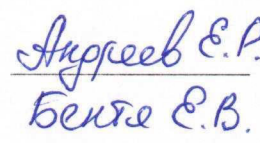 Андреев Е.Р.
Бентя Е.В.